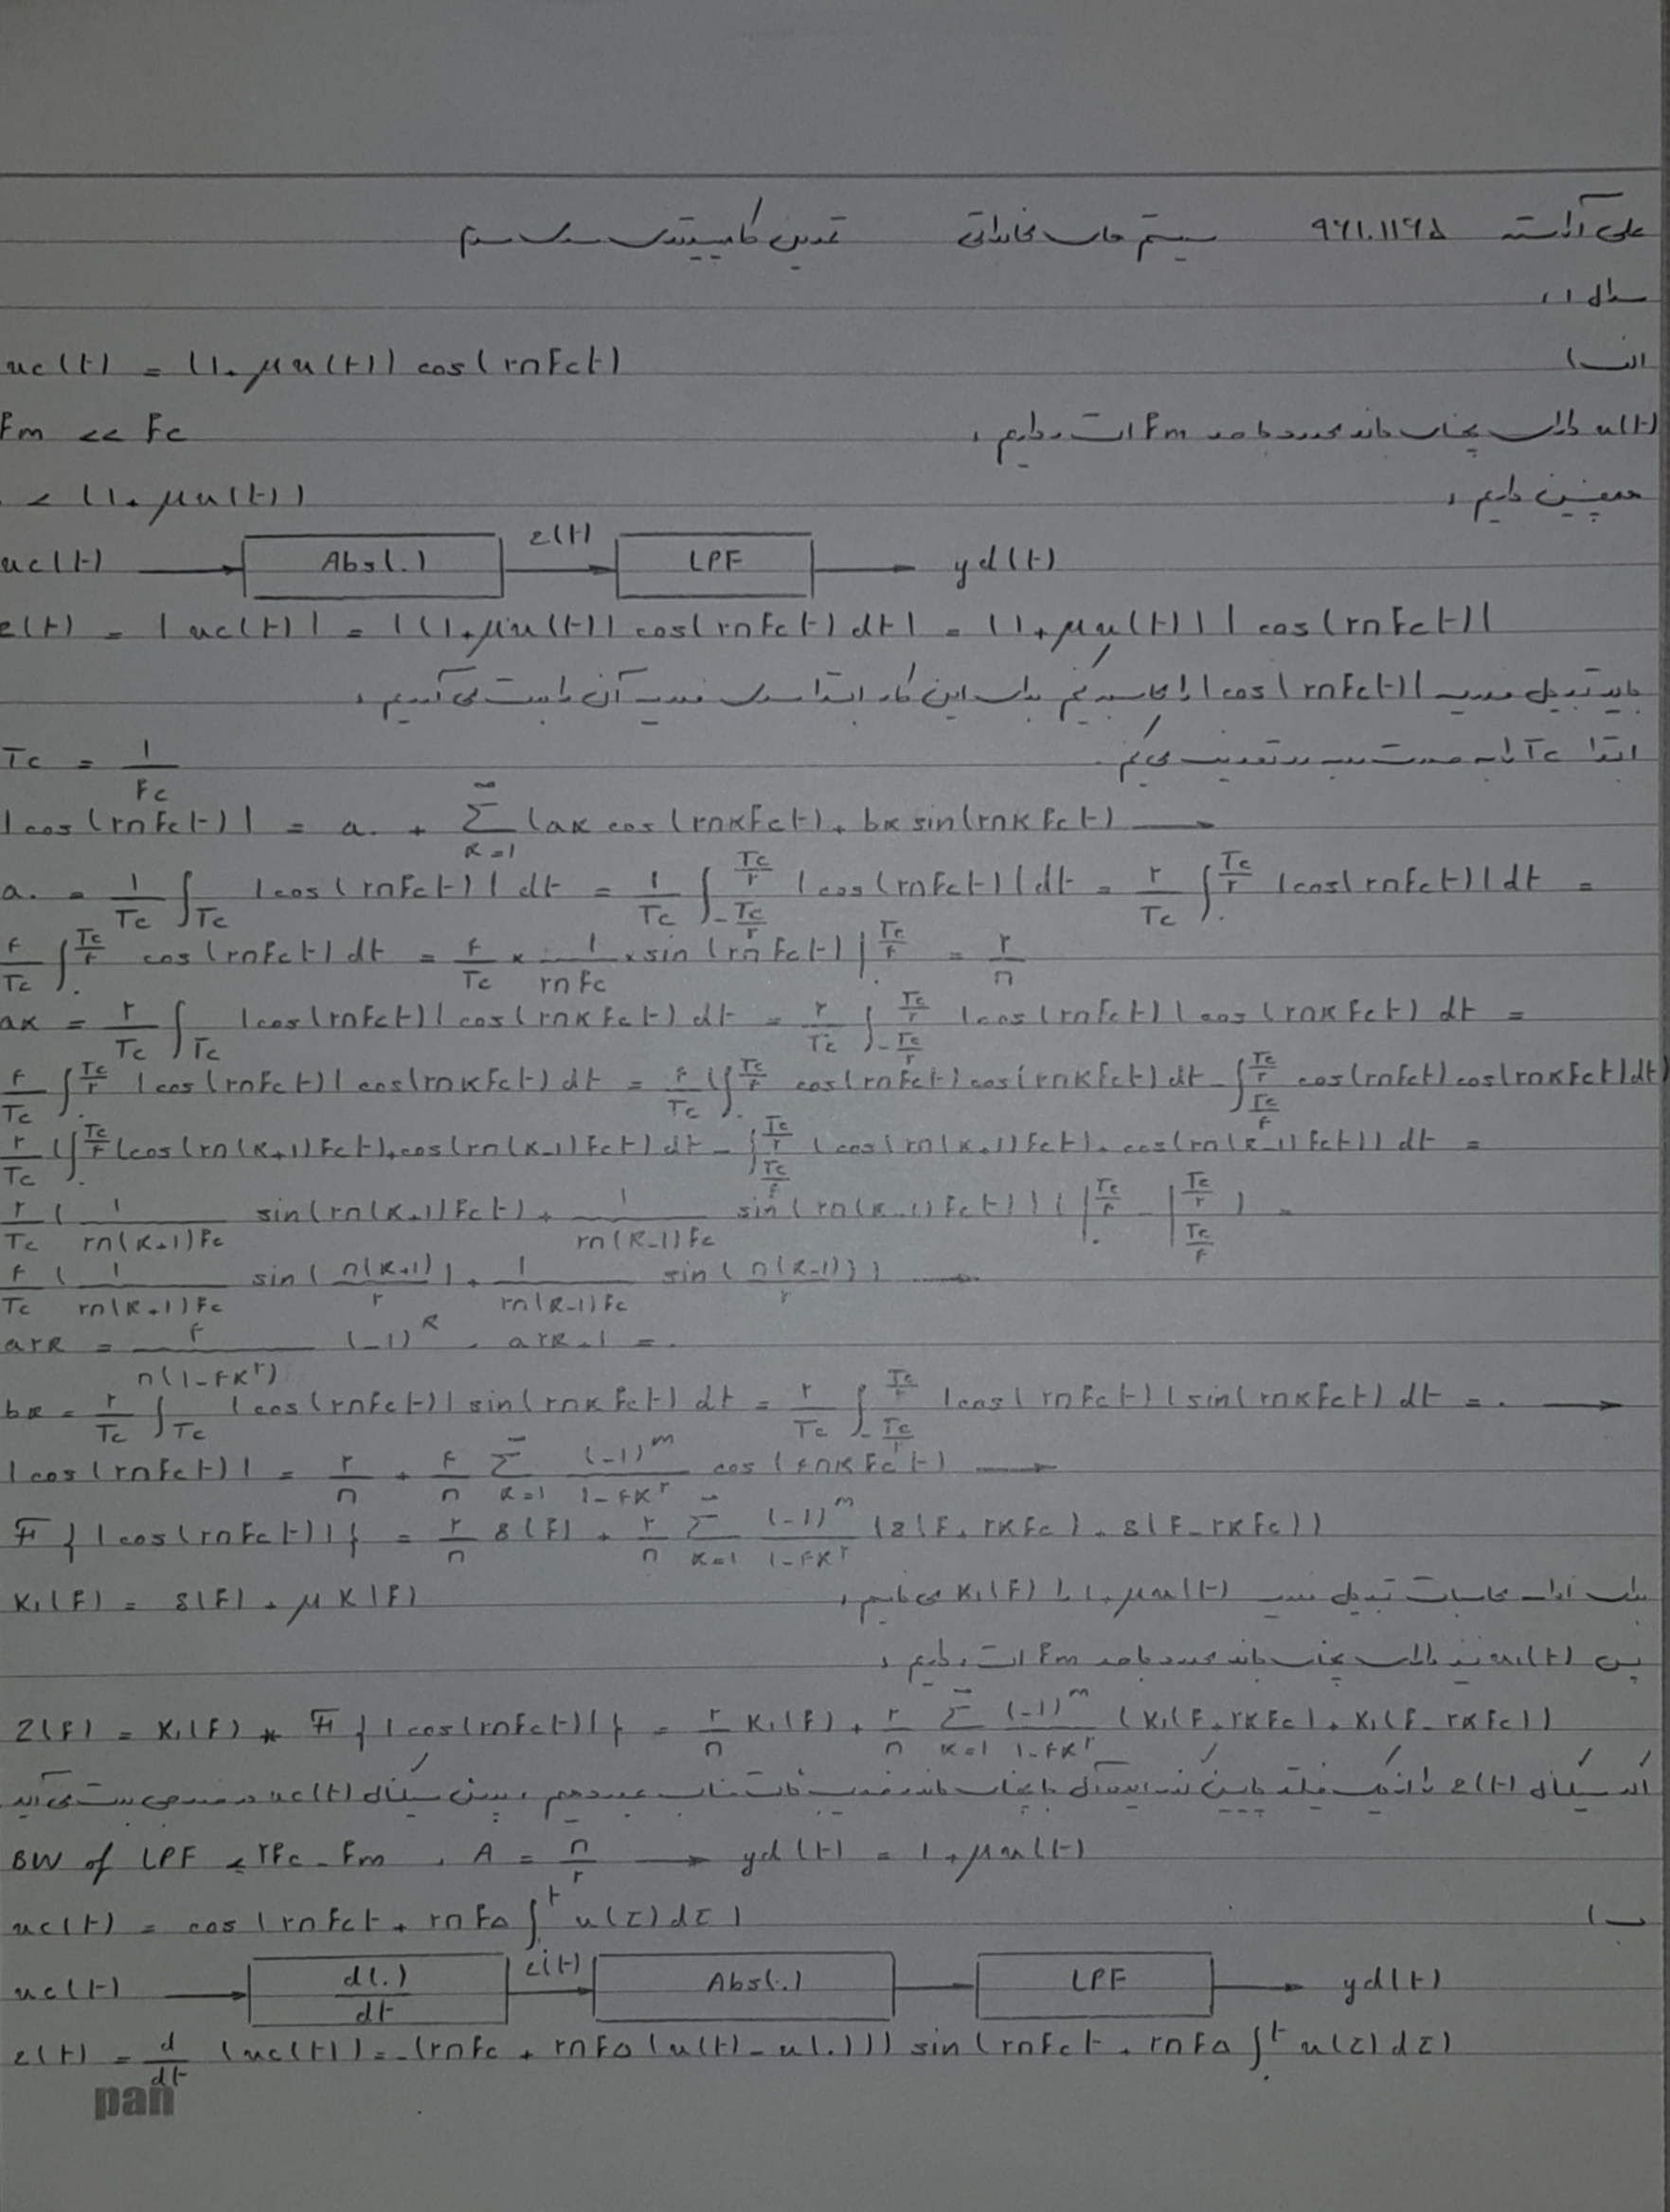 علی آراسته ۹۶۱۰۱۱۶۵ سیستم های مخابراتی تمرین کامپیوتری سری سوم
سوال ۱،
الف)
xc(t) = (1+μx(t)) cos(۲πFct)
x(t) دارای پهنای باند محدود با حد Fm است و داریم، Fm << Fc
همچنین داریم، ۰ ≤ (1+μx(t))
xc(t) → Abs(.) z(t) → LPF → yd(t)
z(t) = |xc(t)| = |(1+μx(t)) cos(۲πFct) dt| = (1+μx(t)) |cos(۲πFct)|
باید تبدیل فوریه |cos(۲πFct)| را محاسبه کنیم برای این کار ابتدا سری فوریه آن را بدست می آوریم،
ابتدا Tc را به صورت تعریف می کنیم. Tc = 1/Fc
|cos(۲πFct)| = a۰ + Σ_{k=1}^{∞} (ak cos(۲πkFct) + bk sin(۲πkFct) →
a۰ = 1/Tc ∫_{Tc} |cos(۲πFct)| dt = 1/Tc ∫_{-Tc/۲}^{Tc/۲} |cos(۲πFct)| dt = ۲/Tc ∫_۰^{Tc/۲} |cos(۲πFct)| dt =
۴/Tc ∫_۰^{Tc/۴} cos(۲πFct) dt = ۴/Tc × 1/۲πFc × sin(۲πFct) |_۰^{Tc/۴} = ۲/π
ak = ۲/Tc ∫_{Tc} |cos(۲πFct)| cos(۲πkFct) dt = ۲/Tc ∫_{-Tc/۲}^{Tc/۲} |cos(۲πFct)| cos(۲πkFct) dt =
۴/Tc ∫_۰^{Tc/۲} |cos(۲πFct)| cos(۲πkFct) dt = ۴/Tc (∫_۰^{Tc/۴} cos(۲πFct) cos(۲πkFct) dt - ∫_{Tc/۴}^{Tc/۲} cos(۲πFct) cos(۲πkFct) dt)
۲/Tc (∫_۰^{Tc/۴} (cos(۲π(k+1)Fct) + cos(۲π(k-1)Fct) dt - ∫_{Tc/۴}^{Tc/۲} (cos(۲π(k+1)Fct) + cos(۲π(k-1)Fct)) dt =
۲/Tc (1/۲π(k+1)Fc sin(۲π(k+1)Fct) + 1/۲π(k-1)Fc sin(۲π(k-1)Fct)) (|_۰^{Tc/۴} - |_{Tc/۴}^{Tc/۲}) =
۴/Tc (1/۲π(k+1)Fc sin(π(k+1)/۲) + 1/۲π(k-1)Fc sin(π(k-1)/۲)) →
a۲k = ۴/π(1-۴k^۲) (-1)^k , a۲k+1 = ۰
bk = ۲/Tc ∫_{Tc} |cos(۲πFct)| sin(۲πkFct) dt = ۲/Tc ∫_{-Tc/۲}^{Tc/۲} |cos(۲πFct)| sin(۲πkFct) dt = ۰ →
|cos(۲πFct)| = ۲/π + ۴/π Σ_{k=1}^{∞} (-1)^m/1-۴k^۲ cos(۴πkFct) →
F{|cos(۲πFct)|} = ۲/π δ(F) + ۲/π Σ_{k=1}^{∞} (-1)^m/1-۴k^۲ (δ(F+۲kFc) + δ(F-۲kFc))
برای ادامه محاسبات تبدیل فوریه 1+μx(t) را X1(F) می نامیم، X1(F) = δ(F) + μX(F)
پس x1(t) نیز دارای پهنای باند محدود با حد Fm است و داریم،
Z(F) = X1(F) * F{|cos(۲πFct)|} = ۲/π X1(F) + ۲/π Σ_{k=1}^{∞} (-1)^m/1-۴k^۲ (X1(F+۲kFc) + X1(F-۲kFc))
اگر سیگنال z(t) را از یک فیلتر پایین گذر ایده آل با پهنای باند و ضریب ثابت مناسب عبور دهیم، سیگنال xc(t) در خروجی بدست می آید
BW of LPF ≤ ۲Fc-Fm , A = π/۲ → yd(t) = 1+μx(t)
ب)
xc(t) = cos(۲πFct + ۲πFΔ ∫^t x(τ)dτ)
xc(t) → d(.)/dt z(t) → Abs(.) → LPF → yd(t)
z(t) = d/dt (xc(t)) = -(۲πFc + ۲πFΔ(x(t) - x(۰))) sin(۲πFct + ۲πFΔ ∫_۰^t x(τ)dτ)
pan